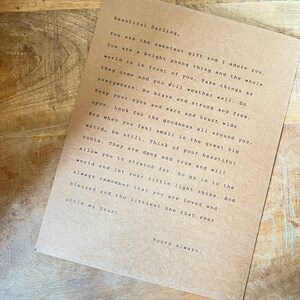 Beautiful Darling,
You are the sweetest gift and I adore you.
You are a bright young thing and the whole
world is in front of you. Take things as
they come and you will weather well. Go
everywhere. Be brave and strong and free.
Keep your eyes and ears and heart wide
open. Look for the goodness all around you.
And when you feel small in the great big
world, be still. Think of your beautiful
roots. They are deep and true and will
allow you to stretch far. So go in to the
world and let your little light shine. And
always remember that you are loved and
blessed and the littlest one that ever
stole my heart.
Yours always,